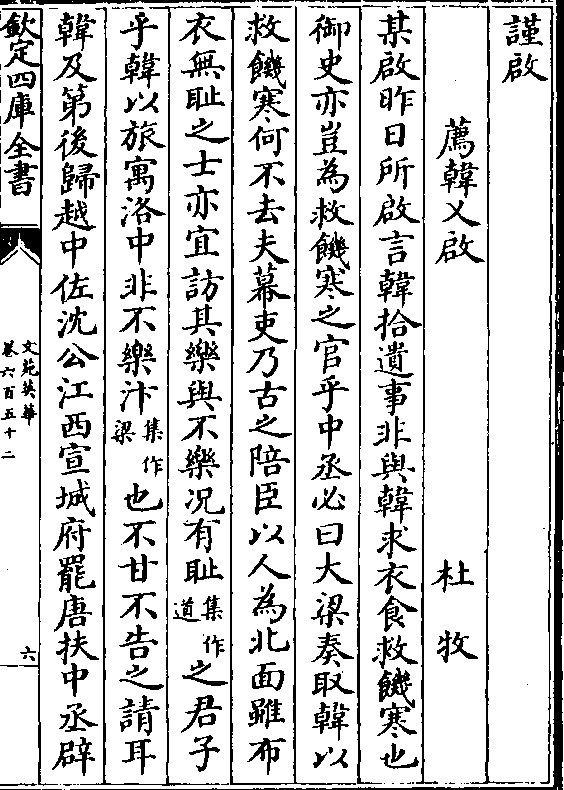 謹啟
薦韓乂啟 杜牧
某啟昨日所啟言韓拾遺事非與韓求衣食救饑寒也
御史亦豈為救饑寒之官乎中丞必曰大梁奏取韓以
救饑寒何不去夫幕吏乃古之陪臣以人為北面雖布
衣無恥之士亦宜訪其樂與不樂况有恥集作道之君子
乎韓以旅寓洛中非不樂汴集作梁也不甘不告之請耳
韓及第後歸越中佐沈公江西宣城府罷唐扶中丞辟
欽定四庫全書
文苑英華
卷六百五十二
六